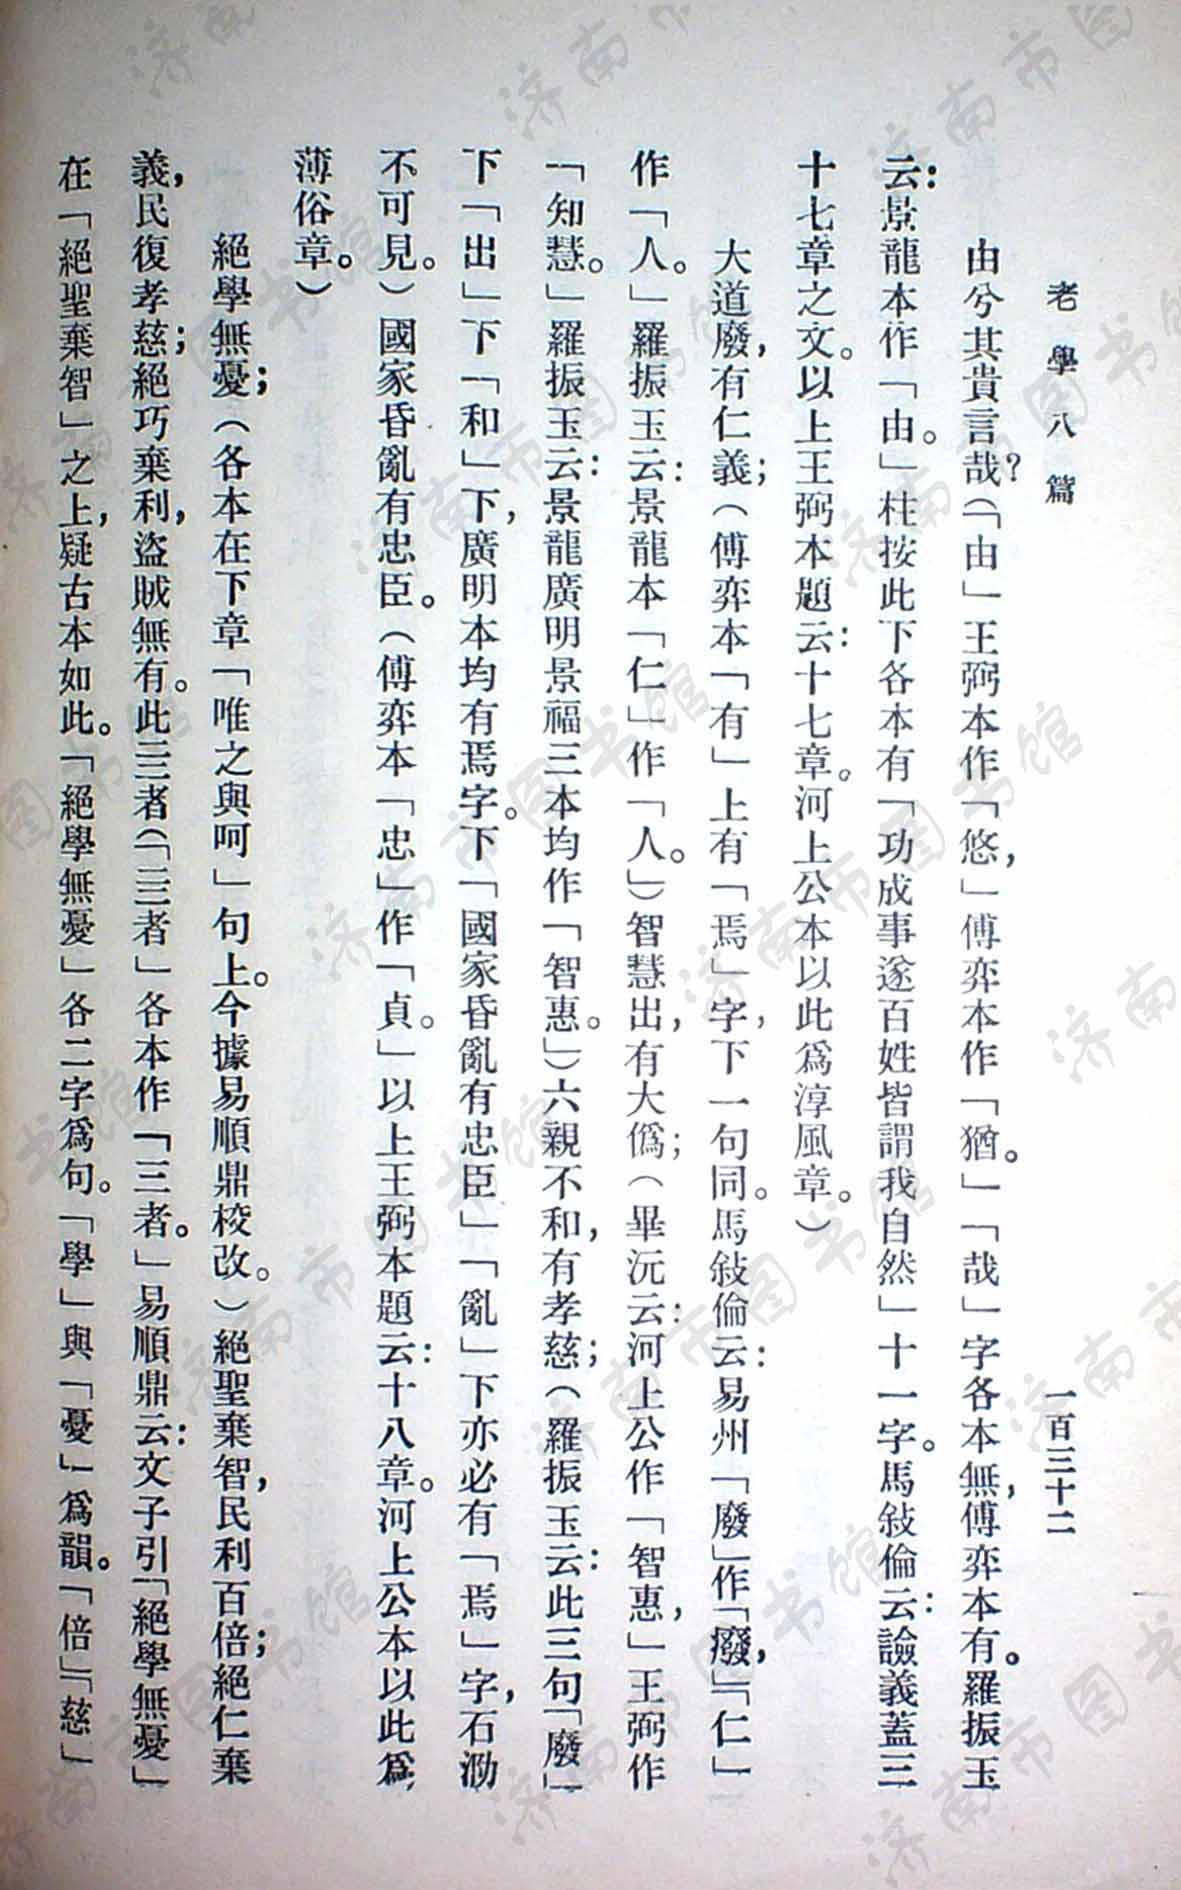 老學八篇
一百三十二
由兮其貴言哉？（「由」王弼本作「悠，」傅弈本作「猶。」「哉」字各本無，傅弈本有。羅振玉
云：景龍本作「由。」柱按此下各本有「功成事遂百姓皆謂我自然」十一字。馬敍倫云：譣義蓋三
十七章之文。以上王弼本題云：十七章。河上公本以此爲淳風章。）
大道廢，有仁義；（傅弈本「有」上有「焉」字，下一句同。馬敍倫云：易州「廢」作「癈，」「仁」
作「人。」羅振玉云：景龍本「仁」作「人。」）智慧出，有大僞；（畢沅云：河上公作「智惠，」王弼作
「知慧。」羅振玉云：景龍廣明景福三本均作「智惠。」）六親不和，有孝慈；（羅振玉云：此三句「廢」
下「出」下「和」下，廣明本均有焉字。下「國家昏亂有忠臣」「亂」下亦必有「焉」字，石泐
不可見。）國家昏亂有忠臣。（傅弈本「忠」作「貞。」以上王弼本題云：十八章。河上公本以此爲
薄俗章。）
絕學無憂；（各本在下章「唯之與呵」句上。今據易順鼎校改。）絕聖棄智，民利百倍；絕仁棄
義，民復孝慈；絕巧棄利，盜賊無有。此三者（「三者」各本作「三者。」易順鼎云：文子引「絕學無憂」
在「絕聖棄智」之上，疑古本如此。「絕學無憂」各二字爲句。「學」與「憂」爲韻。「倍」「慈」
济南市图书馆